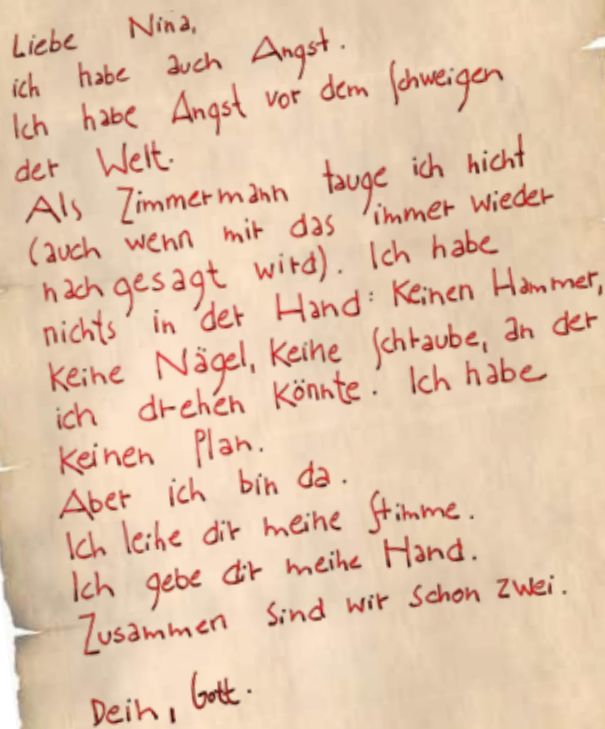 Liebe Nina,
ich habe auch Angst.
Ich habe Angst vor dem Schweigen
der Welt.
Als Zimmermann tauge ich nicht
(auch wenn mir das immer wieder
nachgesagt wird). Ich habe
nichts in der Hand: Keinen Hammer,
keine Nägel, keine Schraube, an der
ich drehen könnte. Ich habe
keinen Plan.
Aber ich bin da.
Ich leihe dir meine Stimme.
Ich gebe dir meine Hand.
Zusammen sind wir schon zwei.
Dein, Gott.